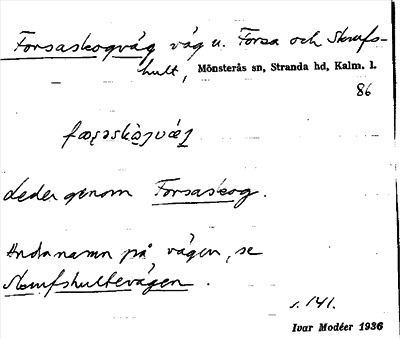 Forsaskogväg väg u. Forsa och Skrufs-
hult, Mönsterås sn, Stranda hd, Kalm. l.
86
Leder genom Forsaskog.
Andra namn på vägen, se
Skrufshultevägen.
s. 141.
Ivar Modéer 1936